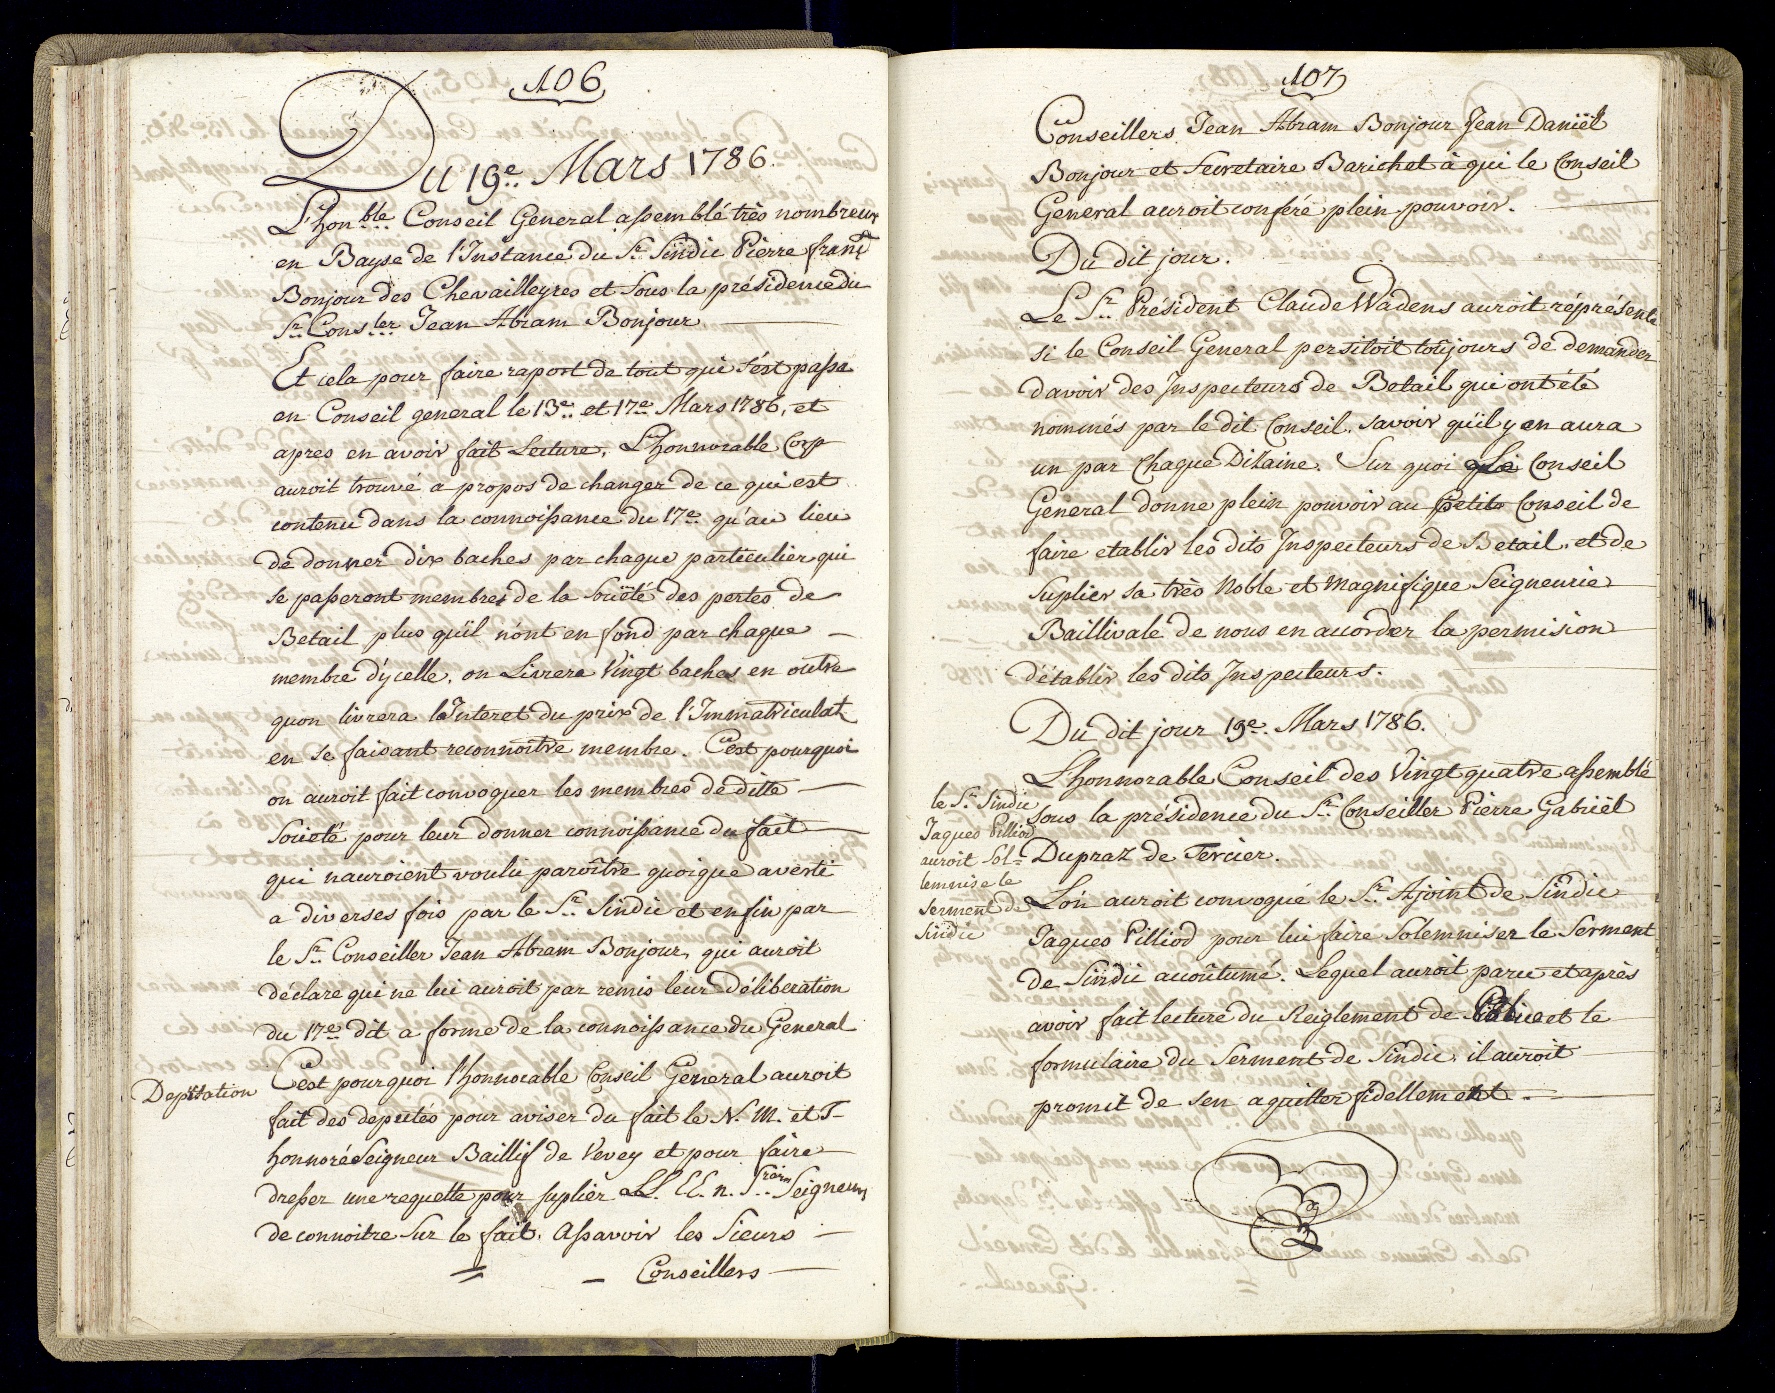 106
Du 19e. Mars 1786.
L'honble. Conseil General assemblé très nombreux
en Bayse de l'Instance du Sr. Sindic Pierre franç
Bonjour des Chevailleyres et sous la présidence du
Sr. Consler. Jean Abram Bonjour.
Et cela pour faire raport de tout qui s'ést passa
en Conseil general le 13e. et 17e. Mars 1786, et
apres en avoir fait Lecture, L'honnorable Corp
auroit trouvé a propos de changer de ce qui est
contenu dans la connoissance du 17e. qu'au lieu
de donner dix baches par chaque particulier qui
se passeront membres de la Societé des pertes de
Betail plus qu'il n'ont en fond par chaque
membre d'ycelle, on Livrera Vingt baches en outre
quon livrera l'Interet du prix de l'Immatriculat.
en se faisant reconnoitre membre. C'est pourquoi
on auroit fait convoquer les membres de ditte
Societé pour leur donner connoissance du fait
qui n'auroient voulu paroître quoique averti
a diverses fois par le Sr. Sindic et enfin par
le Sr. Conseiller Jean Abram Bonjour, qui auroit
déclare qui ne lui auroit par remis leur déliberation
du 17e. dit a forme de la connoissance du General
Deputation
C'est pourquoi l'honnorable Conseil General auroit
fait des deputés pour aviser du fait le N. M. et T
honnoré Seigneur Baillif de Vevey et pour faire
dresser une requette pour suplier LL. EE. n. Srains Seigneurs
de connoitre Sur le fait. Assavoir les Sieurs
Conseillers
107
Conseillers Jean Abram Bonjour Jean Daniël
Bonjour et Secretaire Barichet à qui le Conseil
General auroit conferé plein pouvoir.
Du dit jour.
Le Sr. Président Claude Wadens auroit réprésenté
si le Conseil General persitoit toûjours de demander
davoir des Inspecteurs de Betail qui ont été
nommés par le dit Conseil, savoir qu'il y en aura
un par Chaque Dizaine. Sur quoi Le Conseil
General donne plein pouvoir au Petit Conseil de
faire etablir les dits Inspecteurs de Betail, et de
Suplier sa très Noble et Magnifique Seigneurie
Baillivale de nous en accorder la permision
d'établir les dits Inspecteurs.
Du dit jour 19e. Mars 1786.
L'honnorable Conseil des Vingt quatre assemblé
sous la présidence du Sr. Conseiller Pierre Gabriël
Dupraz de Tercier.
le Sr. Sindic
Jaques Pilliod
auroit Sol=
lemnise le
serment de
Sindic
L'on auroit convoqué le Sr. Ajoint de Sindic
Jaques Pilliod pour lui faire Solemniser le Serment
de Sindic accoûtumé. Lequel auroit paru et après
avoir fait lecture du Reiglement de Police et le
formulaire du Serment de Sindic, il auroit
promit de s'en aquitter fidellement.